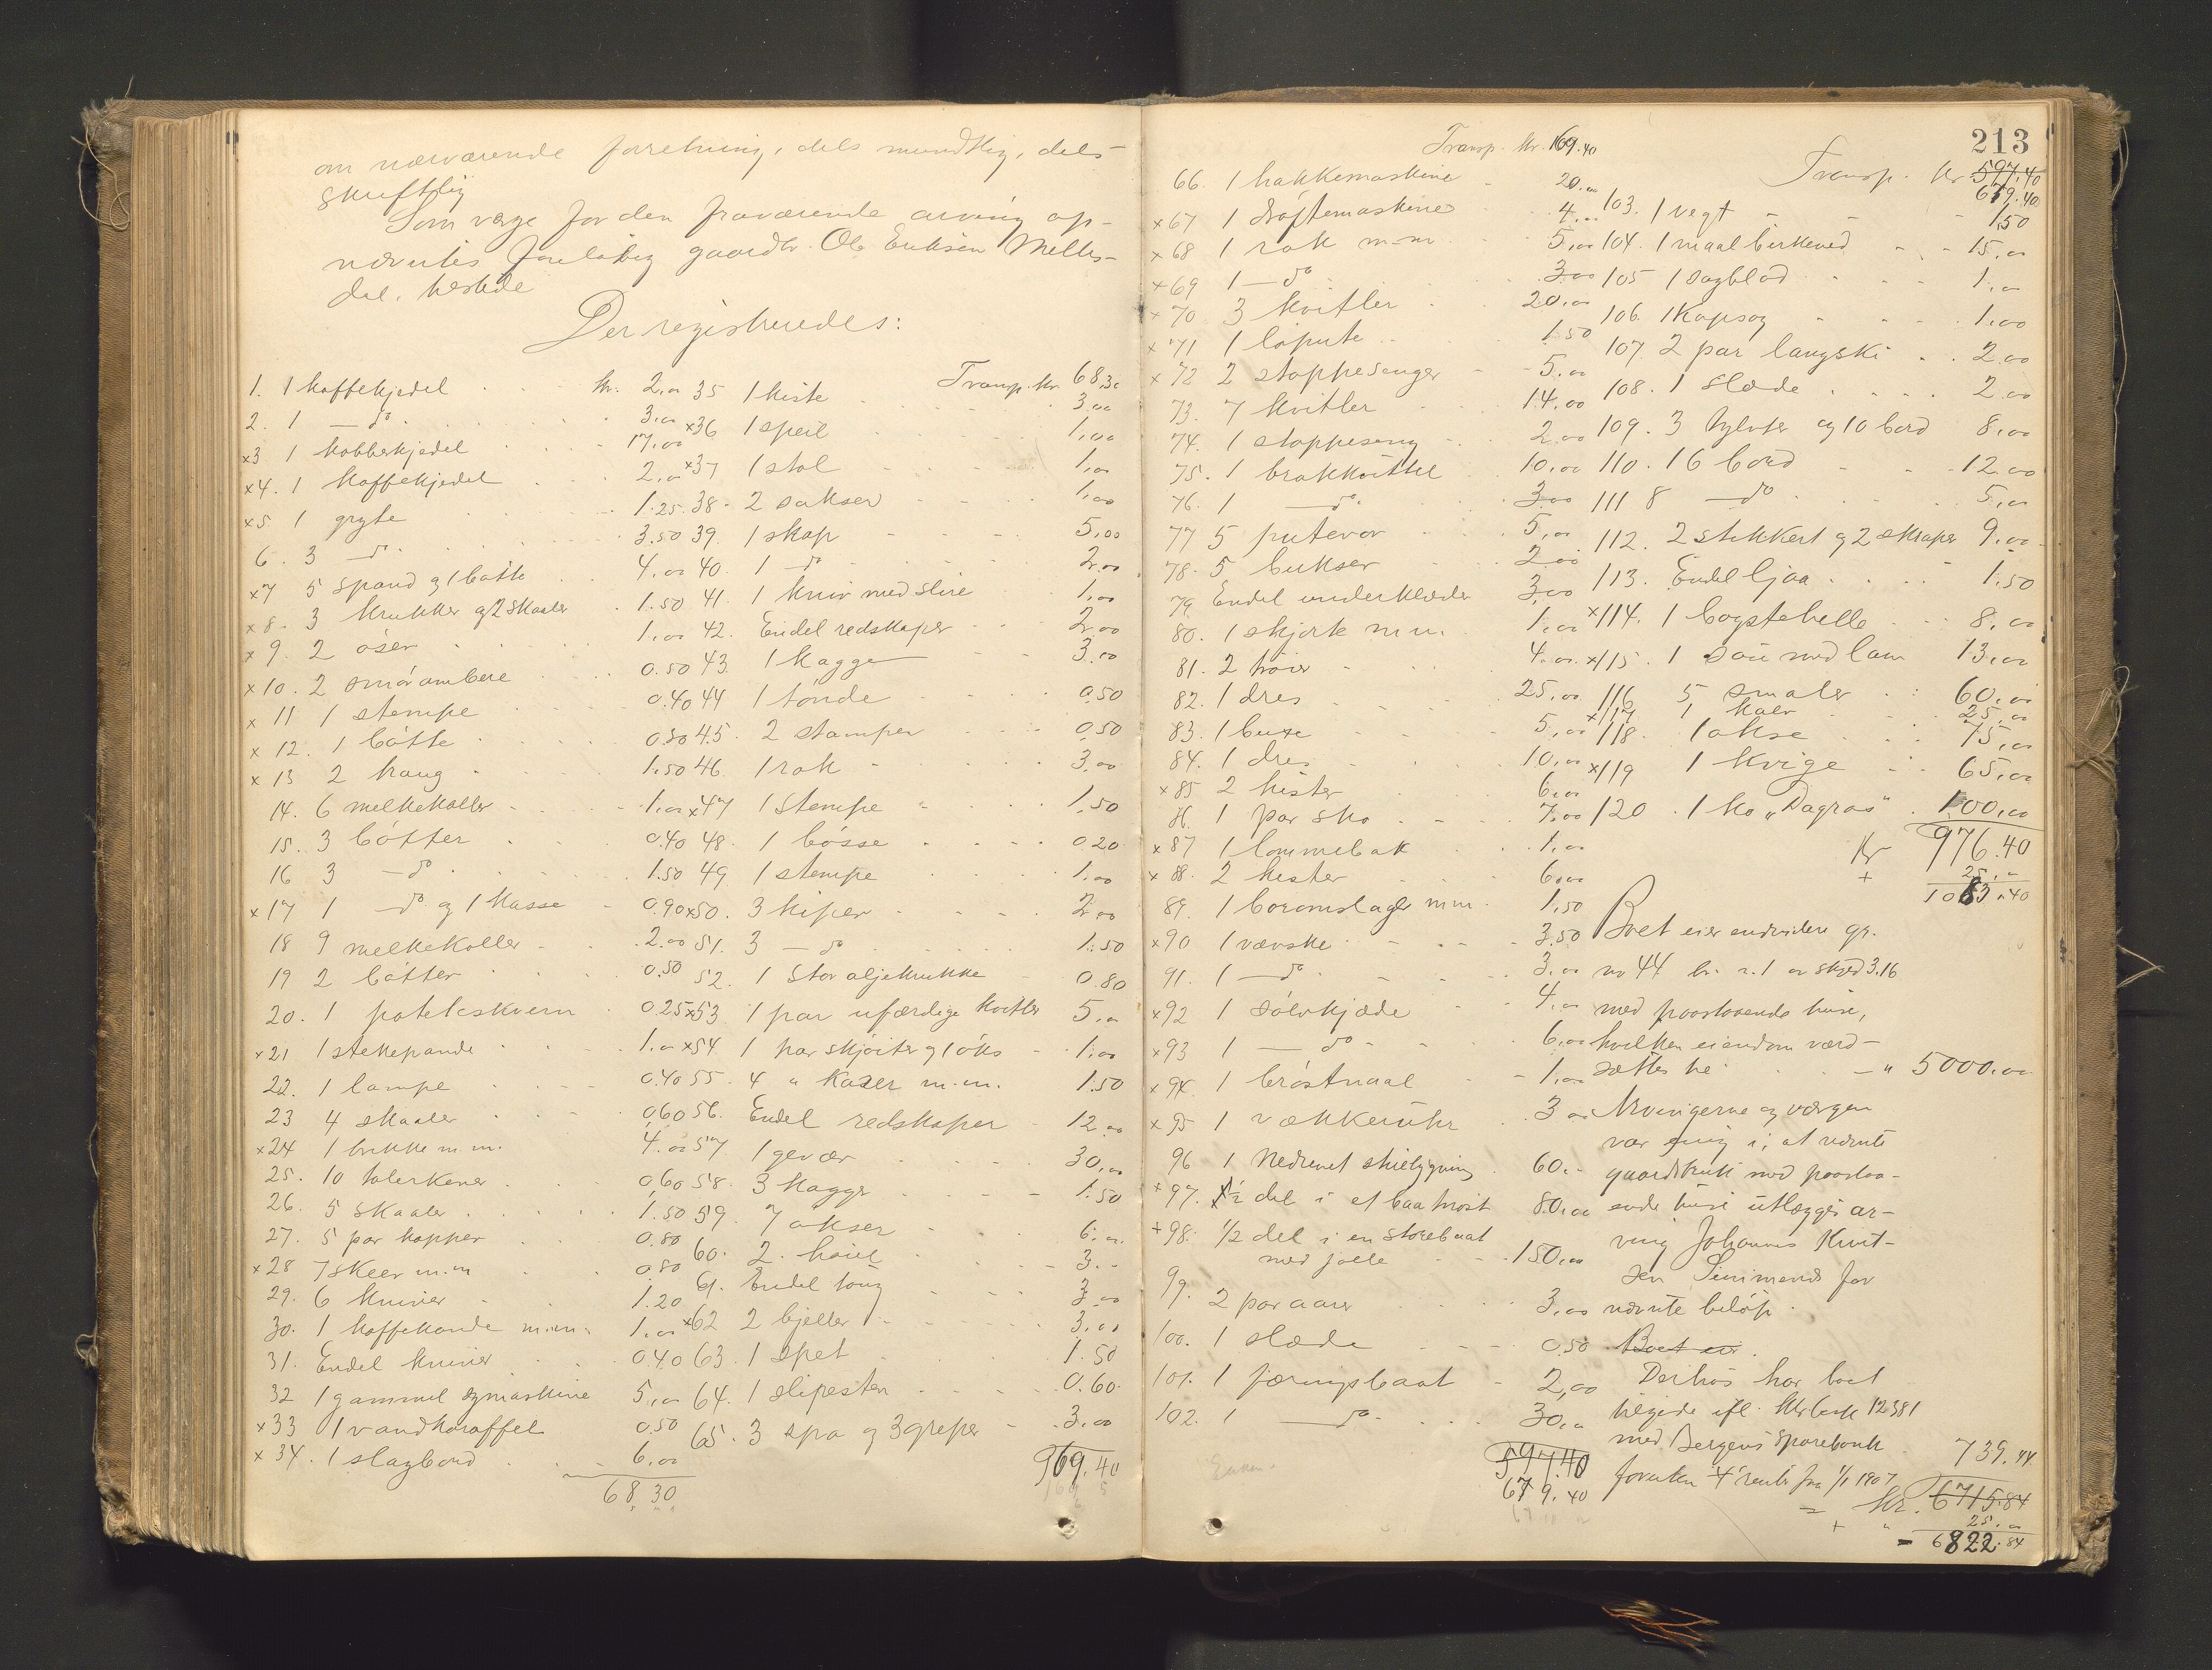 om nærværende forretning, dels mundtlig, dels
skriftlig
Som værge for den fraværende arving op-
nævntes foreløbig gaardbr. Ole Eriksen Melles-
dal, hertede
Der registreredes:
1. 1 kaffekjedel . . kr. 2,00
2. 1 — do . . . 3,00
x3 1 kobberkjedel . . 17,00
x4. 1 kaffekjedel . . 2,00
x5 1 gryte . . . 1.25
6. 3 — do . . . 3.50
x7 5 spand og 1 bøtte . 4,00
x8. 3 krukker og 2 skaaler . 1.50
x9. 2 øser . . . 1,00
x10. 2 smørambere . . 0.50
x 11 1 stempe . . . 0.40
x 12. 1 bøtte . . . 0.50
x 13 2 traug . . . 1.50
14. 6 melkekoller . . 1,00
15. 3 bøtter . . . 0.40
16 3 — do . . . 1.50
x17 1 — do og 1 kasse - 0.90
18 9 melkekoller . . 2.00
19 2 bøtter . . . 0.50
20. 1 poteteskvern . 0.25
x21 1 stekepande . . 1,00
22. 1 lampe . . . 0.40
23 4 skaaler . . . 0,60
x24 1 brikke m.m. . 4.00
25. 10 talerkener . . 0,60
26. 5 skaaler . . . 1.50
27. 5 par kopper . . 0.80
x28 7 skeer m.m . . 0.80
29. 6 kniver . . . 1.20
30. 1 kaffekande m.m. 1,00
31. Endel kniver . . 0.40
32 1 gammel symaskine 5,00
x33 1 vandkaraffel 0.50
x34. 1 slagbord . . 6.00
68.30
Transp. kr. 68.30
35 1 kiste . . . 3,00
x36 1 speil . . . 1,00
x37 1 stol . . . 1,00
38. 2 sakser . . . 1,00
39. 1 skap . . . 5,00
40. 1 — do . . . 2,00
41. 1 kniv med slire . 1,00
42. Endel redskaper . 2,00
43 1 kagge . . 3,00
44 1 tønde . . . 0,50
45. 2 stamper . . 0,50
46. 1 rok . . . 3,00
x47 1 stempe . . 1,50
48. 1 bøsse . . . 0.20
49 1 stempe . . 1,00
x50. 3 kiper . . . 2,00
51. 3 — do . . . 1.50
52. 1 stor oljekrukke - 0.80
x53 1 par ufærdige kvitler 5,00
x54 1 par skjøiter og 1 øks - 1,00
55. 4 " Kazer m.m. 1.50
56. Endel redskaper - 12,00
57 1 gevær . . . 30,00
58. 3 kagger . . . 1.50
59. 7 økser . . . 6,00
60. 2 høvel . . . 3.-
61. Endel toug . . 3,00
x62 2 bjeller . . . 3,00
63. 1 spet . . . 1.50
64. 1 slipesten . . 0.60
65. 3 spa og 3 greper - 3,00
169.40
213
Transp. kr. 169.40
66. 1 hakkemaskine - 20.00
x67 1 drøftemaskine . 4,00
x68 1 rok m.m. . 5,00
x69 1 — do . . 3.00
x70. 3 kvitler . . 20,00
x71 1 løpute . . 1.50
x72 2 stoppesenger - 5,00
73. 7 kvitler . . 14,00
74. 1 stoppeseng . 2,00
75. 1 brakkvittel . 10,00
76. 1 — do . . 3,00
77 5 putevor . . 5,00
78. 5 bukser . . 2,00
79. Endel underklæder 3,00
80. 1 skjørt m.m. . 1,00
81. 2 trøier . . 4,00
82. 1 dres . . . 25,00
83. 1 buxe . . . 5,00
84. 1 dres . . . 10,00
x85 2 kister . . 6,00
86. 1 par sko . . 7,00
x87 1 lommebok . . 1,00
x88. 2 kister . . 6,00
89. 1 boromslager m.m. 1,50
x90 1 vævske . . 3.50
91. 1 — do . . 3,00
x92 1 sølvkjæde . . 4,00
x93 1 — do . . 6,00
x94. 1 brøstnaal . - 1,00
x95 1 vækkeruhr . 3,00
96 1 Nedrevet skielygning . 60.-
x97. 1/2 del i et baatnøst 80,00
x98. 1/2 del i en storebaat
med jolle - - 150,00
99. 2 par aarer . . 3,00
100. 1 slæde . . . 0,50
101. 1 færingsbaat - 2,00
102. 1 — do . . 30,00
597.40
679.40
Transp. kr 597.40
679.40
103. 1 vegt - - - 1,50
104. 1 maal birkeved . - 15,00
105 1 sagblad . . . 1,00
106. 1 Kapsag . . . 1.00
107. 2 par langski . . 2.00
108. 1 slæde . . . 2.00
109. 3 tylvter og 10 bord 8,00
110. 16 bord - - 12.00
111 8 — do . . . 5,00
112. 2 stikkert og 2 skraper 9.00
113. Endel ljaa . . . 1.50
x114. 1 bogstehelle . . 8,00
x115. 1 sau med lam 13,00
116 5 smaler . . 60,00
x117 1 kalv . . 25,00
118. 1 okse . . . 75,00
x119 1 kvige . . 65,00
120. 1 ko „Dagros“ . 100,00
Kr 976.40
+ 25,00
1083.40
Boet eier endvidere gr.
no 44 br. n. 1 av skyld 3.16
med paastaaende huse,
hvilken eiendom værd-
sættes til . . . — " 5000.00
Arvingerne og værgen
var enig i, at nævnte
gaardsbruk med paastaa-
ende huse utlægges ar-
ving Johannes Knut-
sen Simmenes for
nævnte beløp.
Boet eier .
Derhos har boet
tilgode ifl. ktrbok 12381
med Bergens Sparebank . 739.44
foruten renter fra 1/1 1907
= Kr. 6715.84
+ " 25,00
- 6822.84